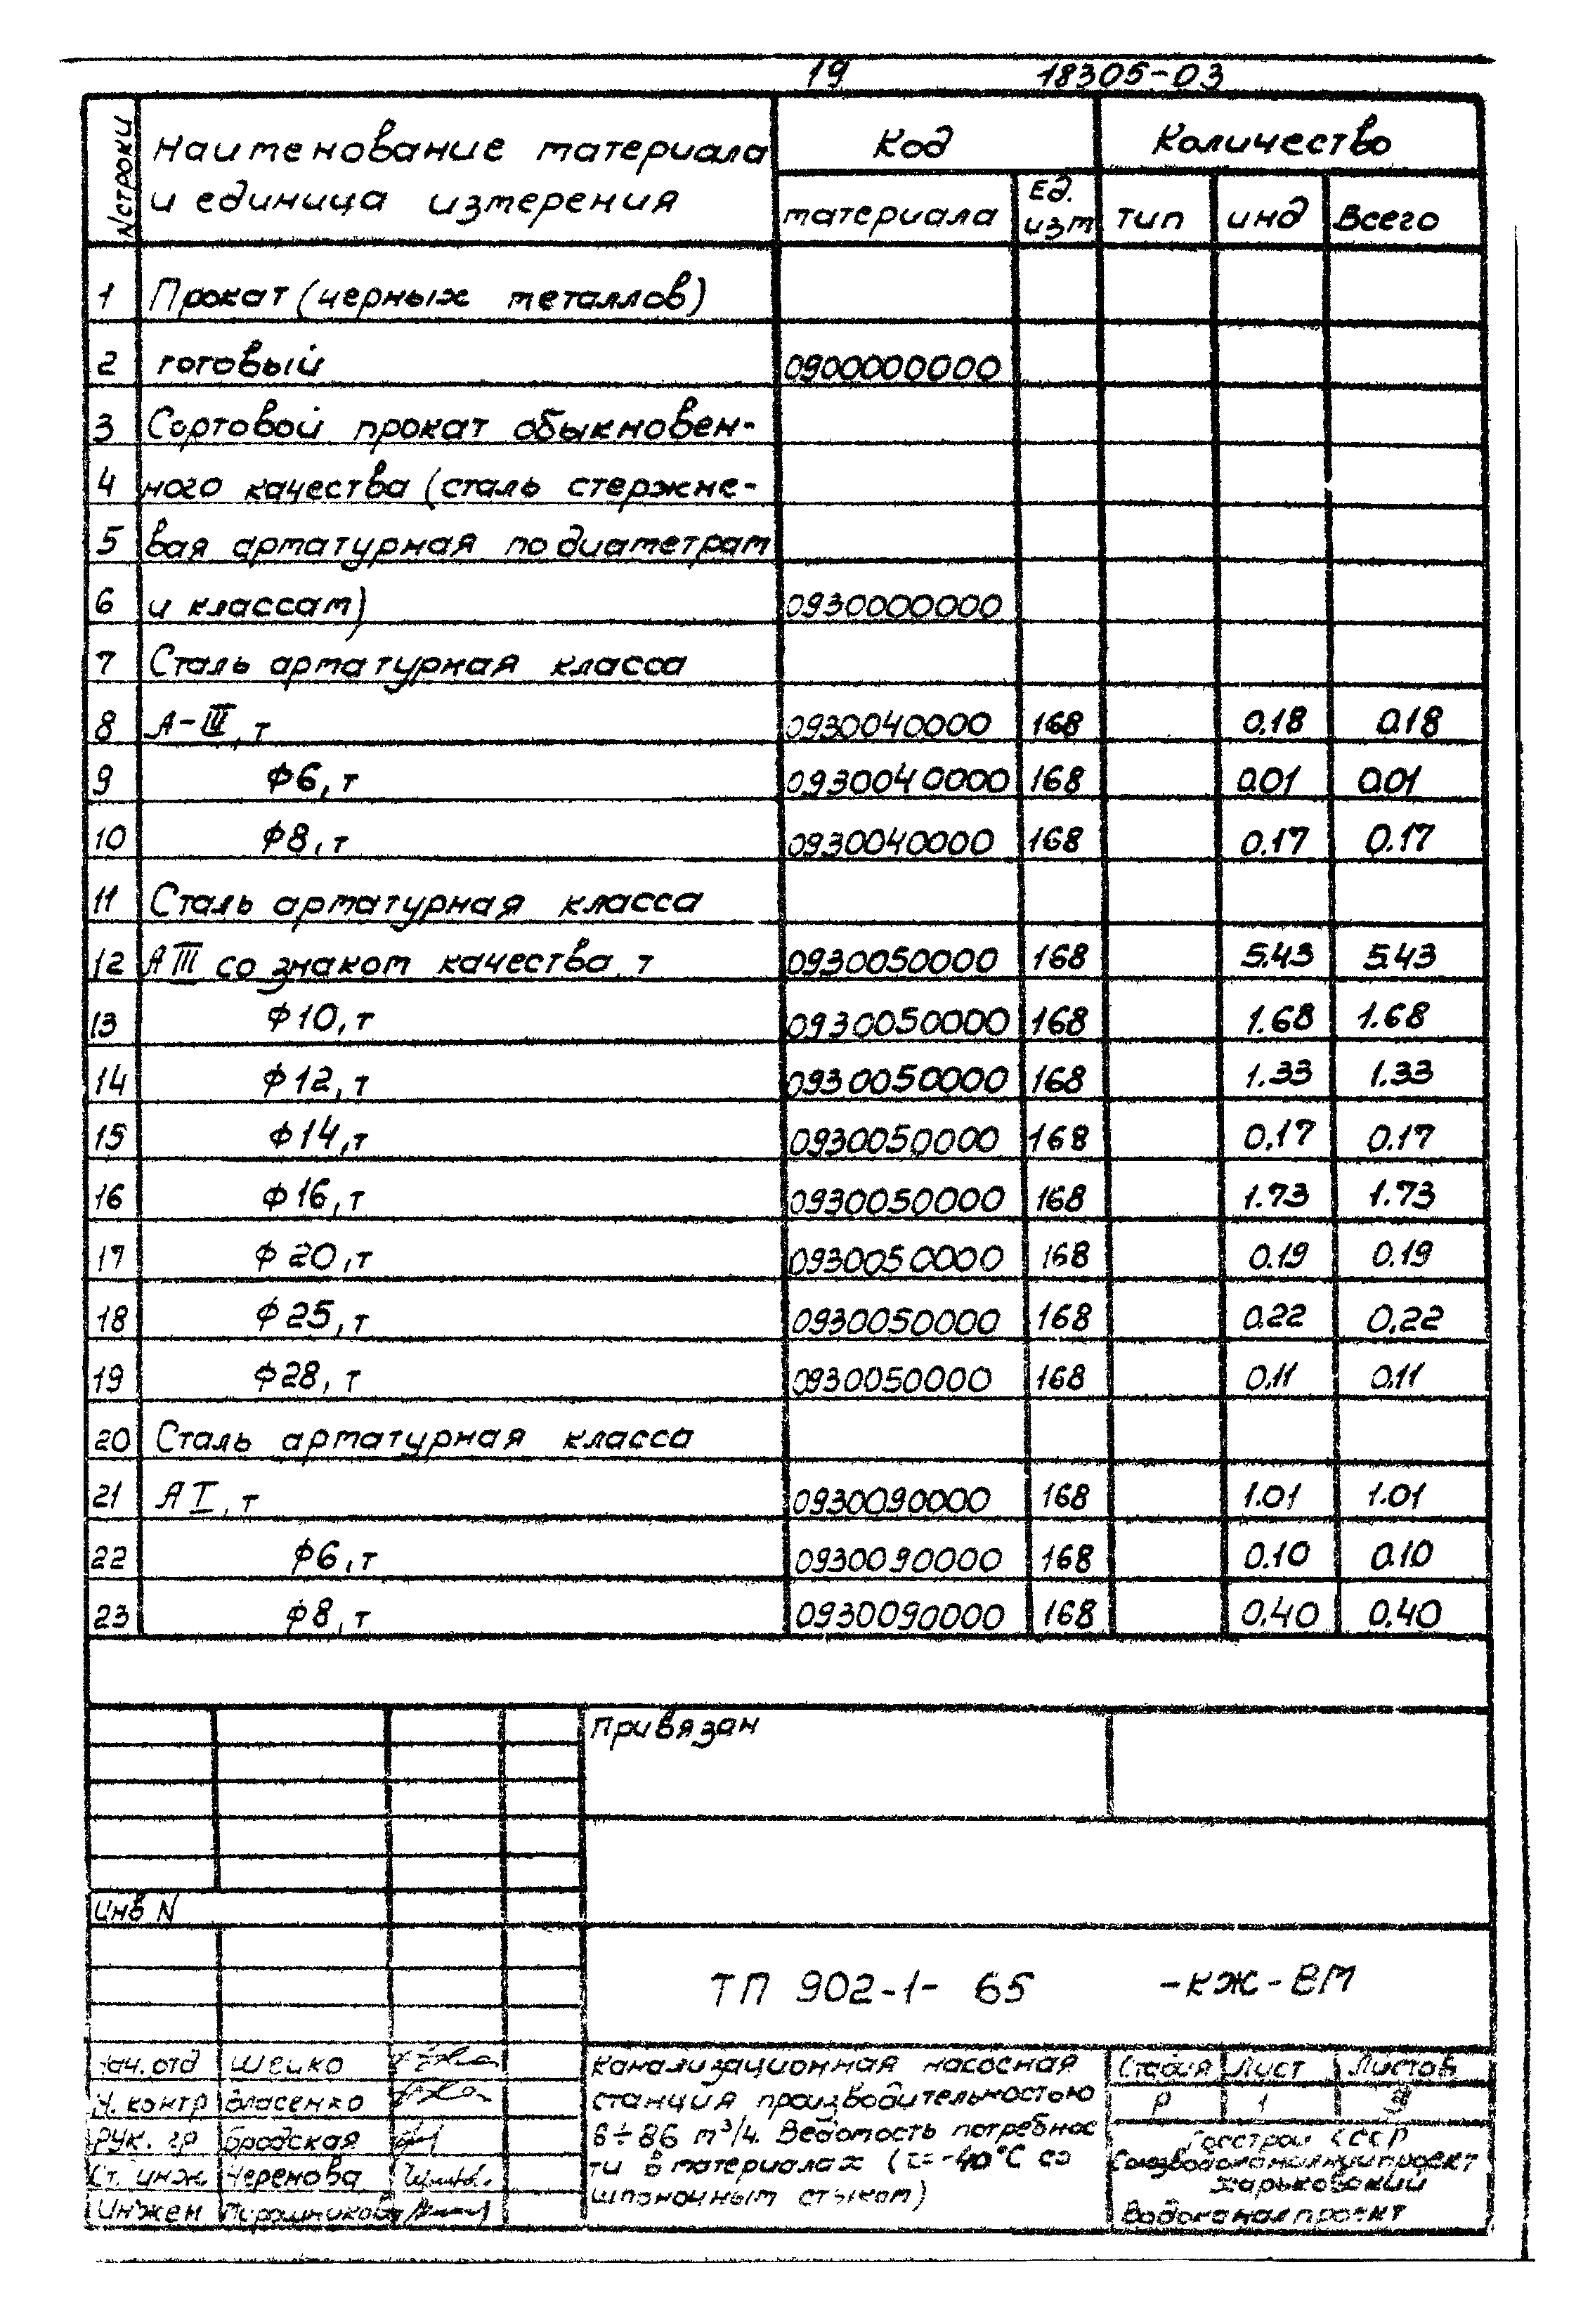 19 18305-03
N строки Наименование материала и единица измерения Код Количество
материала Ед. изм тип инд Всего
1 Прокат (черных металлов)
2 готовый 0900000000
3 Сортовой прокат обыкновен-
4 ного качества (сталь стержне-
5 вая арматурная по диаметрам
6 и классам) 0930000000
7 Сталь арматурная класса
8 А-III, т 0930040000 168 0.18 0.18
9 Ф6, т 0930040000 168 0.01 0.01
10 Ф8, т 0930040000 168 0.17 0.17
11 Сталь арматурная класса
12 А III со знаком качества, т 0930050000 168 5.43 5.43
13 Ф10, т 0930050000 168 1.68 1.68
14 Ф12, т 0930050000 168 1.33 1.33
15 Ф14, т 0930050000 168 0.17 0.17
16 Ф16, т 0930050000 168 1.73 1.73
17 Ф20, т 0930050000 168 0.19 0.19
18 Ф25, т 0930050000 168 0.22 0.22
19 Ф28, т 0930050000 168 0.11 0.11
20 Сталь арматурная класса
21 А I, т 0930090000 168 1.01 1.01
22 Ф6, т 0930090000 168 0.10 0.10
23 Ф8, т 0930090000 168 0.40 0.40
Привязан
Инв N
ТП 902-1-65 -КЖ-ВМ
Нач. отд Шейко
Н. контр Власенко
Рук. гр Бродская
Ст. инж Черенова
Инжен
Канализационная насосная
станция производительностью
8÷86 м³/ч. Ведомость потребнос
ти в материалах (t=-40°C со
шпоночным стыком)
Стадия Лист Листов
Р 1 3
Госстрой СССР
Союзводоканалниипроект
Харьковский
Водоканалпроект